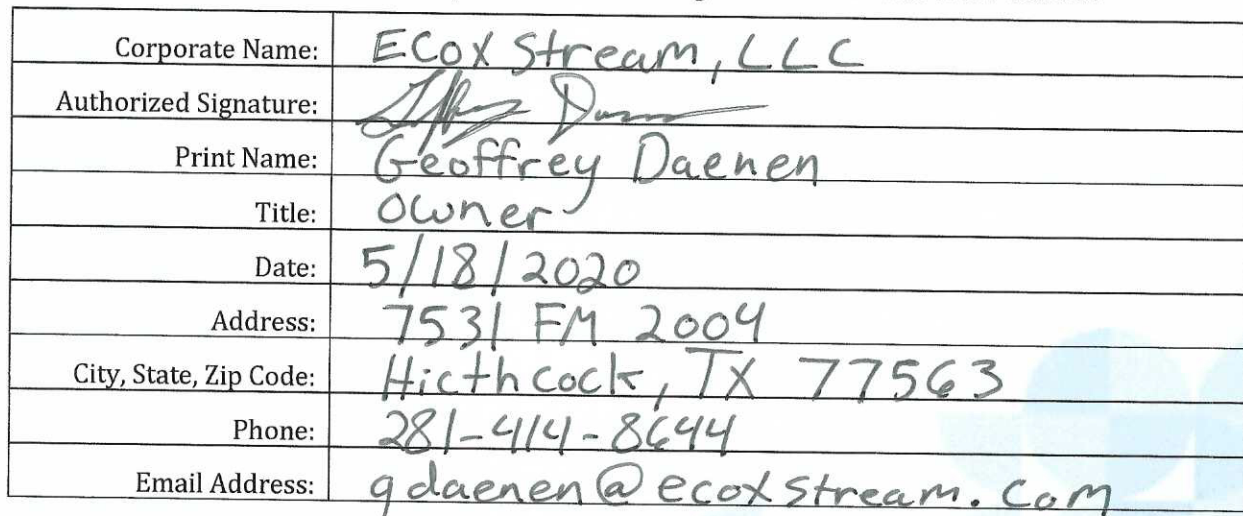 Corporate Name: Ecox Stream, LLC
Authorized Signature:
Print Name: Geoffrey Daenen
Title: Owner
Date: 5/18/2020
Address: 7531 FM 2004
City, State, Zip Code: Hicthcock, TX 77563
Phone: 281-414-8644
Email Address: gdaenen@ecoxstream.com